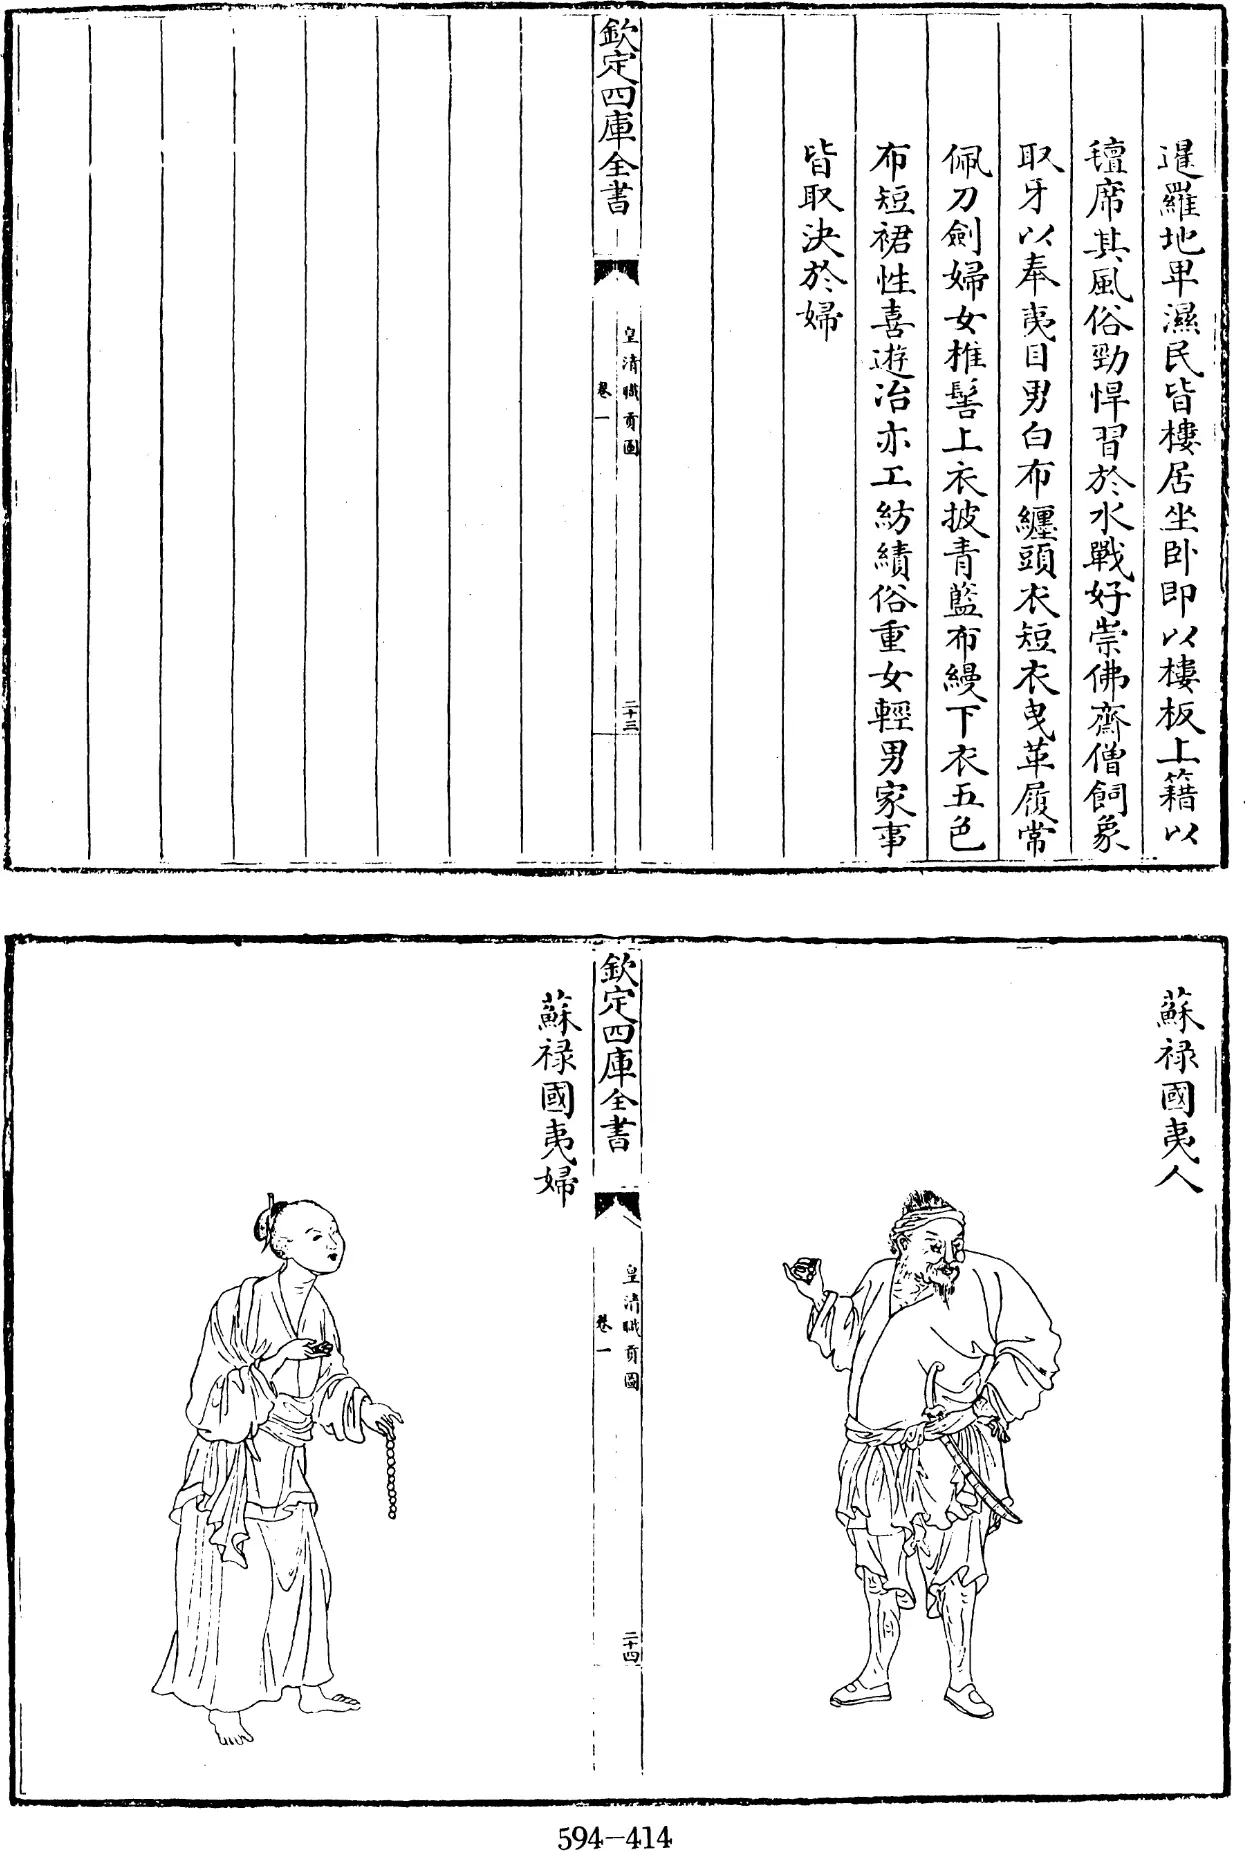 暹羅地卑濕民皆樓居坐卧即以樓板上籍以
氊席其風俗勁悍習於水戰好崇佛齋僧飼象
取牙以奉夷目男白布纏頭衣短衣曳革履常
佩刀劍婦女椎髻上衣披青藍布縵下衣五色
布短裙性喜遊冶亦工紡績俗重女輕男家事
皆取決於婦
欽定四庫全書
皇清職貢圖
卷一
二十三
蘇祿國夷人
欽定四庫全書
皇清職貢圖
卷一
二十四
蘇祿國夷婦
594-414